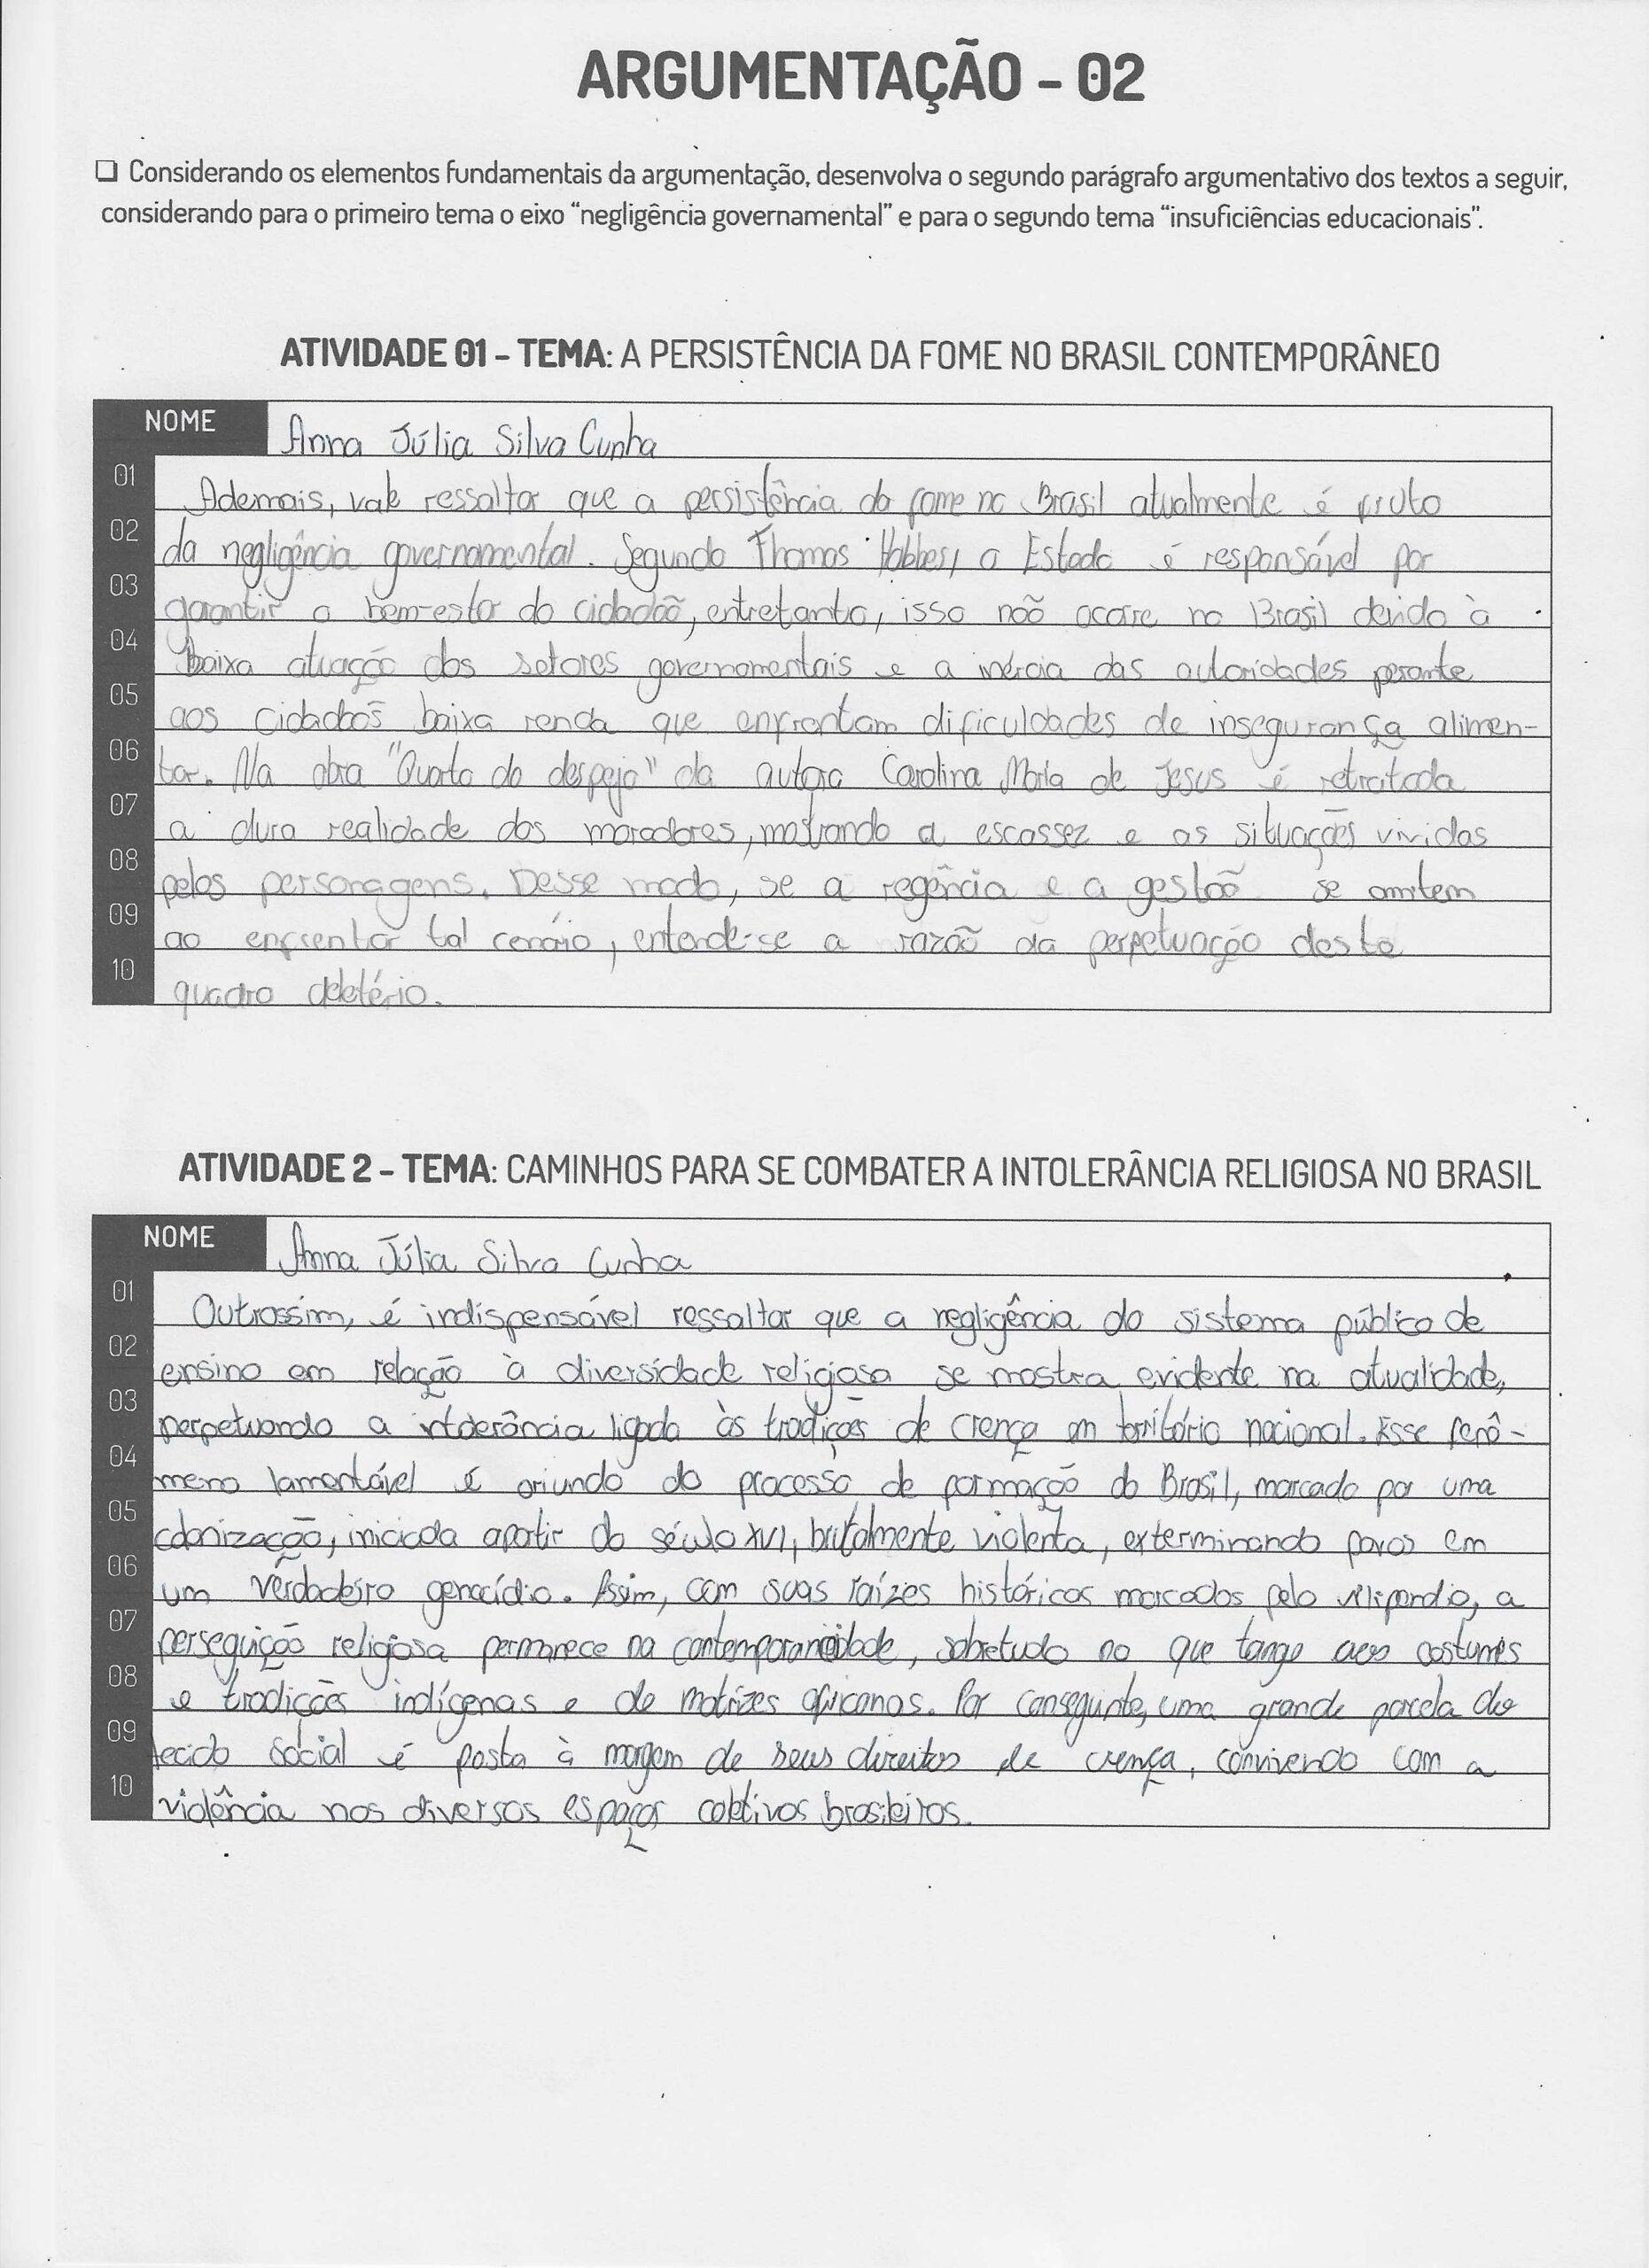 ARGUMENTAÇÃO - 02
❑ Considerando os elementos fundamentais da argumentação, desenvolva o segundo parágrafo argumentativo dos textos a seguir,
considerando para o primeiro tema o eixo “negligência governamental” e para o segundo tema “insuficiências educacionais”.
ATIVIDADE 01 - TEMA: A PERSISTÊNCIA DA FOME NO BRASIL CONTEMPORÂNEO
NOME Anna Júlia Silva Cunha
01 Ademais, vale ressaltar que a persistência da fome no Brasil atualmente é fruto
02 da negligência governamental. Segundo Thomas Hobbes, o Estado é responsável por
03 garantir o bem-estar do cidadão, entretanto, isso não ocorre no Brasil devido à
04 baixa atuação dos setores governamentais e a inércia das autoridades perante
05 aos cidadãos baixa renda que enfrentam dificuldades de insegurança alimen-
06 tar. Na obra "Quarto do despejo" da autora Carolina Maria de Jesus é retratada
07 a dura realidade dos moradores, mostrando a escassez e as situações vividas
08 pelos personagens. Desse modo, se a regência e a gestão se omitem
09 ao enfrentar tal cenário, entende-se a razão da perpetuação deste
10 quadro deletério.
ATIVIDADE 2 - TEMA: CAMINHOS PARA SE COMBATER A INTOLERÂNCIA RELIGIOSA NO BRASIL
NOME Anna Júlia Silva Cunha
01 Outrossim, é indispensável ressaltar que a negligência do sistema público de
02 ensino em relação à diversidade religiosa se mostra evidente na atualidade,
03 perpetuando a intolerância ligada às tradições de crença em território nacional. Esse fenô-
04 meno lamentável é oriundo do processo de formação do Brasil, marcado por uma
05 colonização, iniciada apartir do século XVI, brutalmente violenta, exterminando povos em
06 um verdadeiro genocídio. Assim, com suas raízes históricas marcadas pelo vilipêndio, a
07 perseguição religiosa permanece na contemporaneidade, sobretudo no que tange aos costumes
08 e tradições indígenas e de matrizes africanas. Por conseguinte, uma grande parcela do
09 tecido social é posta à margem de seus direitos de crença, convivendo com a
10 violência nos diversos espaços coletivos brasileiros.